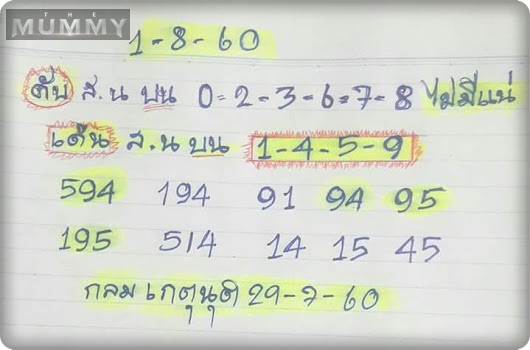 THE
MUMMY
1-8-60
ดับ ส.น บน 0-2-3-6-7-8 ไม่มีแน่
เด่น ส.น บน 1-4-5-9
594 194 91 94 95
195 514 14 15 45
กลม เกตุนุติ 29-7-60